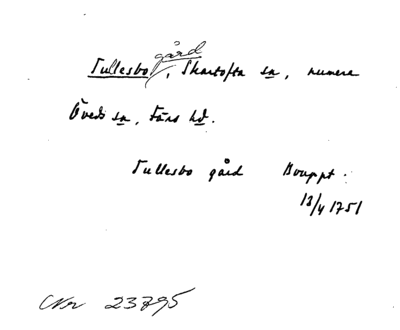 Tullesbo gård, Skartofta sn, numera
Öveds sn, Färs hd.
Tullesbo gård Bouppt.
13/4 1751
Nr 23795